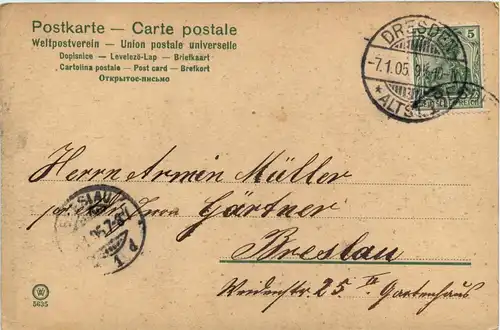 Postkarte — Carte postale
Weltpostverein — Union postale universelle
Dopisnice — Levelező-Lap — Briefkaart
Cartolina postale — Post card — Brefkort
Открытое-письмо
DRESDEN
-7.1.05.
*ALTST.
5
Herrn Armin Müller
Gärtner
BRESLAU
Breslau
Weidenstr 25 II Gartenhaus
5635